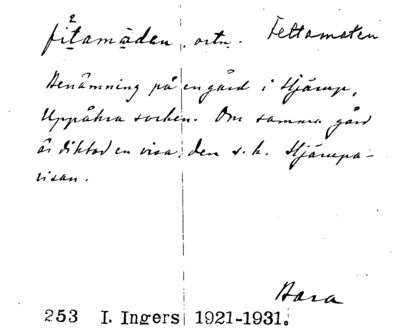 fitamädan, ortn. Fettamaten
Benämning på en gård i Hjärup,
Uppåkra socken. Om samma gård
är diktad en visa, den s.k. Hjärupa-
visan.
Bara
253 I. Ingers 1921-1931.